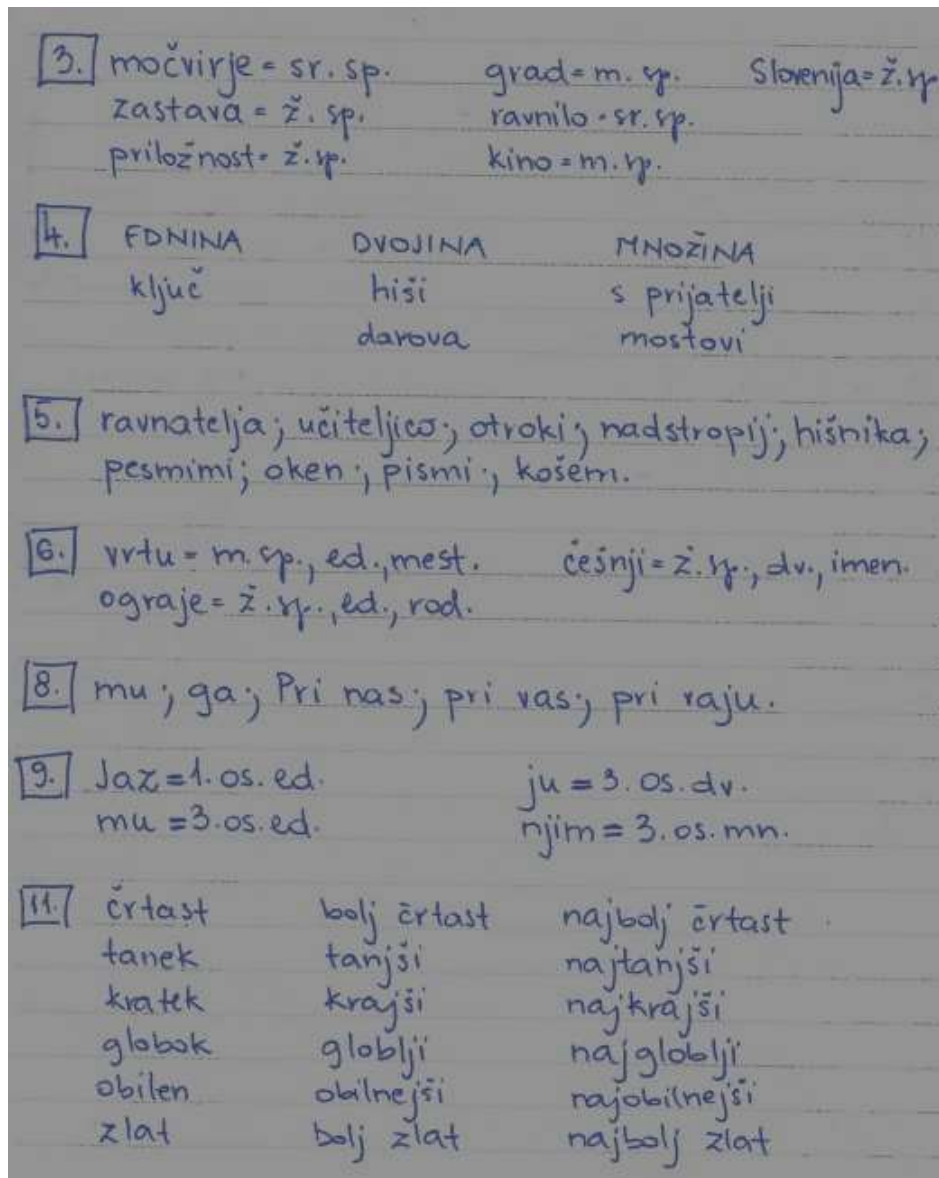 3. močvirje = sr. sp. grad = m. sp. Slovenija = ž. sp
zastava = ž. sp. ravnilo = sr. sp.
priložnost = ž. sp. kino = m. sp.
4. EDNINA DVOJINA MNOŽINA
ključ hiši s prijatelji
darova mostovi
5. ravnatelja; učiteljico; otroki; nadstropij; hišnika;
pesmimi; oken; pismi; košem.
6. vrtu = m. sp., ed., mest. češnji = ž. sp., dv., imen.
ograje = ž. sp., ed., rod.
8. mu; ga; Pri nas; pri vas; pri raju.
9. Jaz = 1. os. ed. ju = 3. os. dv.
mu = 3. os. ed. njim = 3. os. mn.
11. črtast bolj črtast najbolj črtast
tanek tanjši najtanjši
kratek krajši najkrajši
globok globlji najgloblji
obilen obilnejši najobilnejši
zlat bolj zlat najbolj zlat